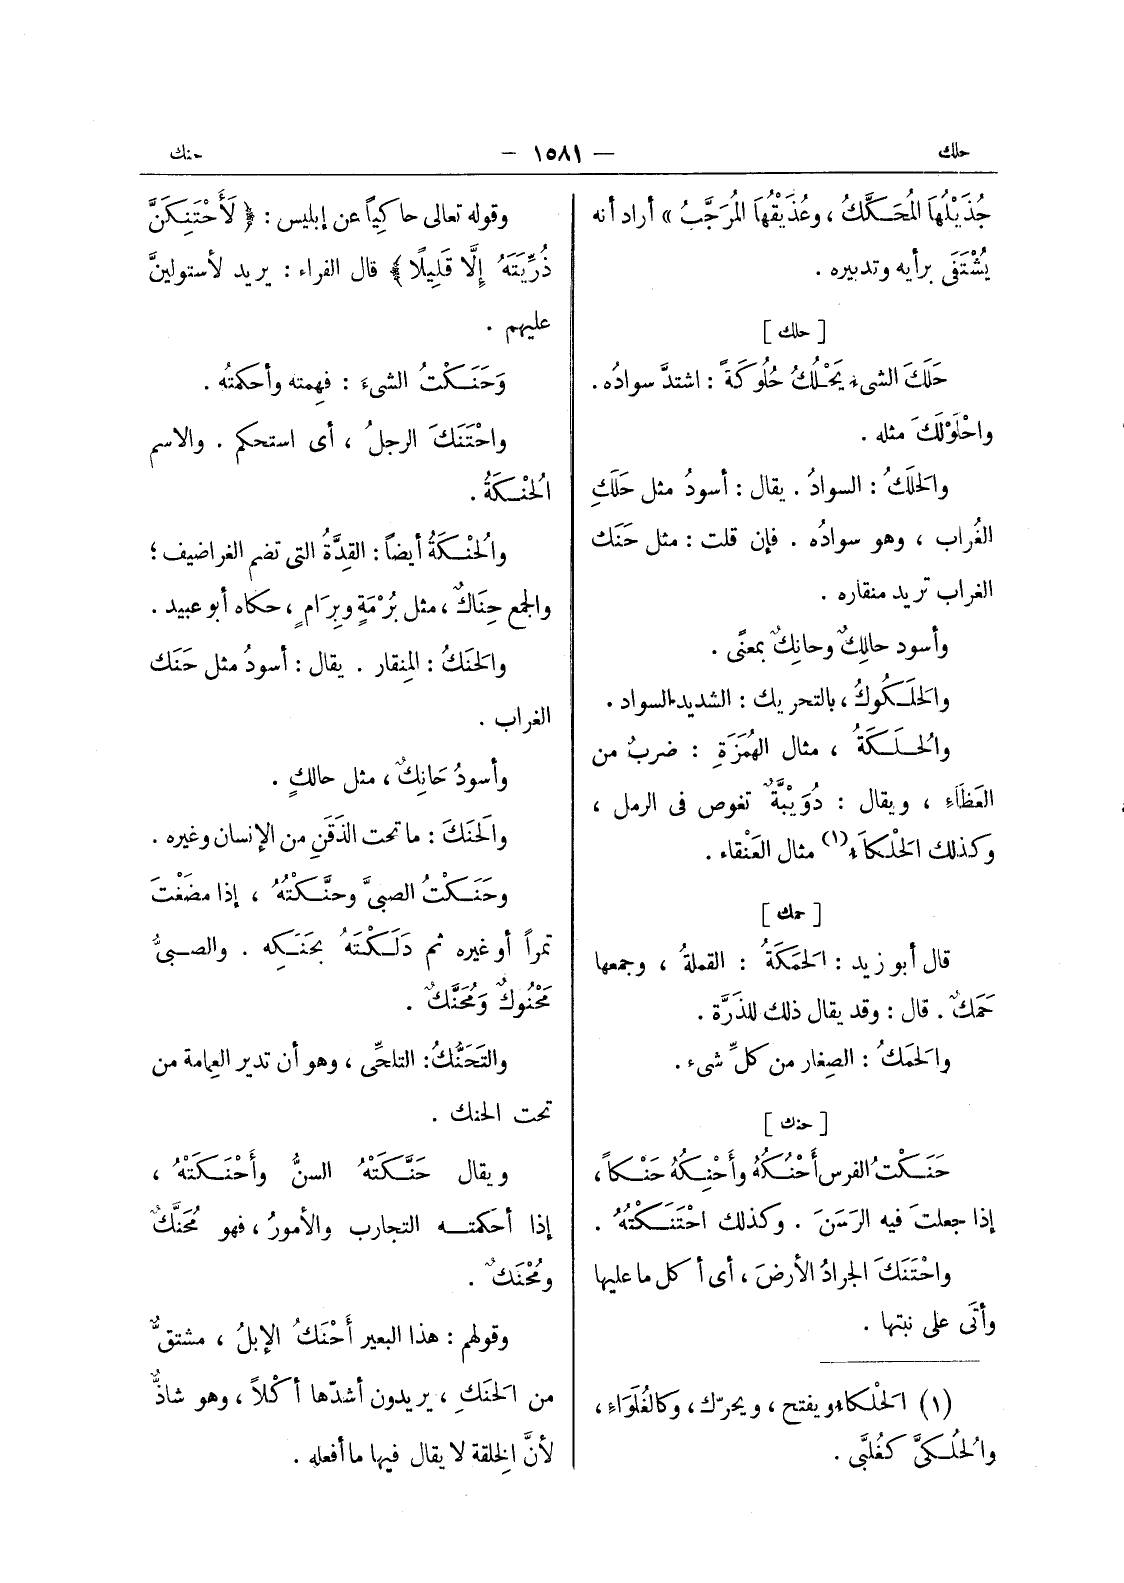 حلك
— ١٥٨١ —
حنك
جُذَيْلُهَا الْمُحَكَّكُ ، وعُذَيْقُهَا الْمُرَجَّبُ » أراد أنه
يُشْتَفَى برأيه وتدبيره .
[ حلك ]
حَلَكَ الشىء يَحْلُكُ حُلُوكَةً : اشتدَّ سوادُه .
واحْلَوْلَكَ مثله .
والحَلَكُ : السوادُ . يقال : أسودُ مثل حَلَكِ
الغُراب ، وهو سوادُه . فإن قلت : مثل حَنَك
الغراب تريد منقاره .
وأسود حالِكٌ وحانِكٌ بمعنًى .
والحَلَكُوكُ ، بالتحريك : الشديد السواد .
والحُلَكَةُ ، مثال الهُمَزَةِ : ضربٌ من
العَظَاءِ ، ويقال : دُوَيْبَّةٌ تغوص فى الرمل ،
وكذلك الحَلْكاَء (١) مثال العَنْقاء .
[ حمك ]
قال أبو زيد : الحَمَكَةُ : القملةُ ، وجمعها
حَمَكٌ . قال : وقد يقال ذلك للذَرَّة .
والحَمَكُ : الصِغار من كلِّ شىء .
[ حنك ]
حَنَكْتُ الفرس أَحْنُكُهُ وأَحْنِكُهُ حَنْكاً ،
إذا جعلتَ فيه الرَسَنَ . وكذلك احْتَنَكْتُهُ .
واحْتَنَكَ الجرادُ الأرضَ ، أى أكل ما عليها
وأتَى على نبتها .
(١) الحَلْكاء ويفتح ، ويحرّك ، وكالغُلَوَاءِ ،
والحُلُكىَّ كغُلبَّى .
وقوله تعالى حاكياً عن إبليس : ﴿ لَأَحْتَنِكَنَّ
ذُرِّيَّتَهُ إِلَّا قَلِيلًا ﴾ قال الفراء : يريد لأستولينَّ
عليهم .
وَحَنَكْتُ الشىءَ : فهِمته وأحكمتُه .
واحْتَنَكَ الرجلُ ، أى استحكم . والاسم
الحُنْكَةُ .
والحُنْكَةُ أيضاً : القِدَّةُ التى تضم الغراضيف ؛
والجمع حِنَاكٌ ، مثل بُرْمَةٍ وبِرَامٍ ، حكاه أبو عبيد .
والحَنَكُ : المِنقار . يقال : أسودُ مثل حَنَك
الغراب .
وأسودُ حَانِكٌ ، مثل حالكٍ .
والحَنَكَ : ما تحت الذَقَنِ من الإنسان وغيره .
وحَنَكْتُ الصبىَّ وحنَّكْتُهُ ، إذا مضَغْتَ
تمراً أو غيره ثم دَلَكْتَهُ بحَنَكِه . والصبىُّ
مَحْنُوكٌ وَمُحَنَّكٌ .
والتَحَنُّكُ: التلحِّى ، وهو أن تدير العِمامة من
تحت الحنك .
ويقال حَنَّكَتْهُ السنُّ وأَحْنَكَتْهُ ،
إذا أحكمته التجارب والأمورُ ، فهو مُحَنَّكٌ
ومُحْنَكٌ .
وقولهم : هذا البعير أَحْنَكُ الإبلُ ، مشتقٌّ
من الحَنَكِ ، يريدون أشدّها أكْلاً ، وهو شاذٌّ
لأنَّ الخِلقة لا يقال فيها ما أفعله .